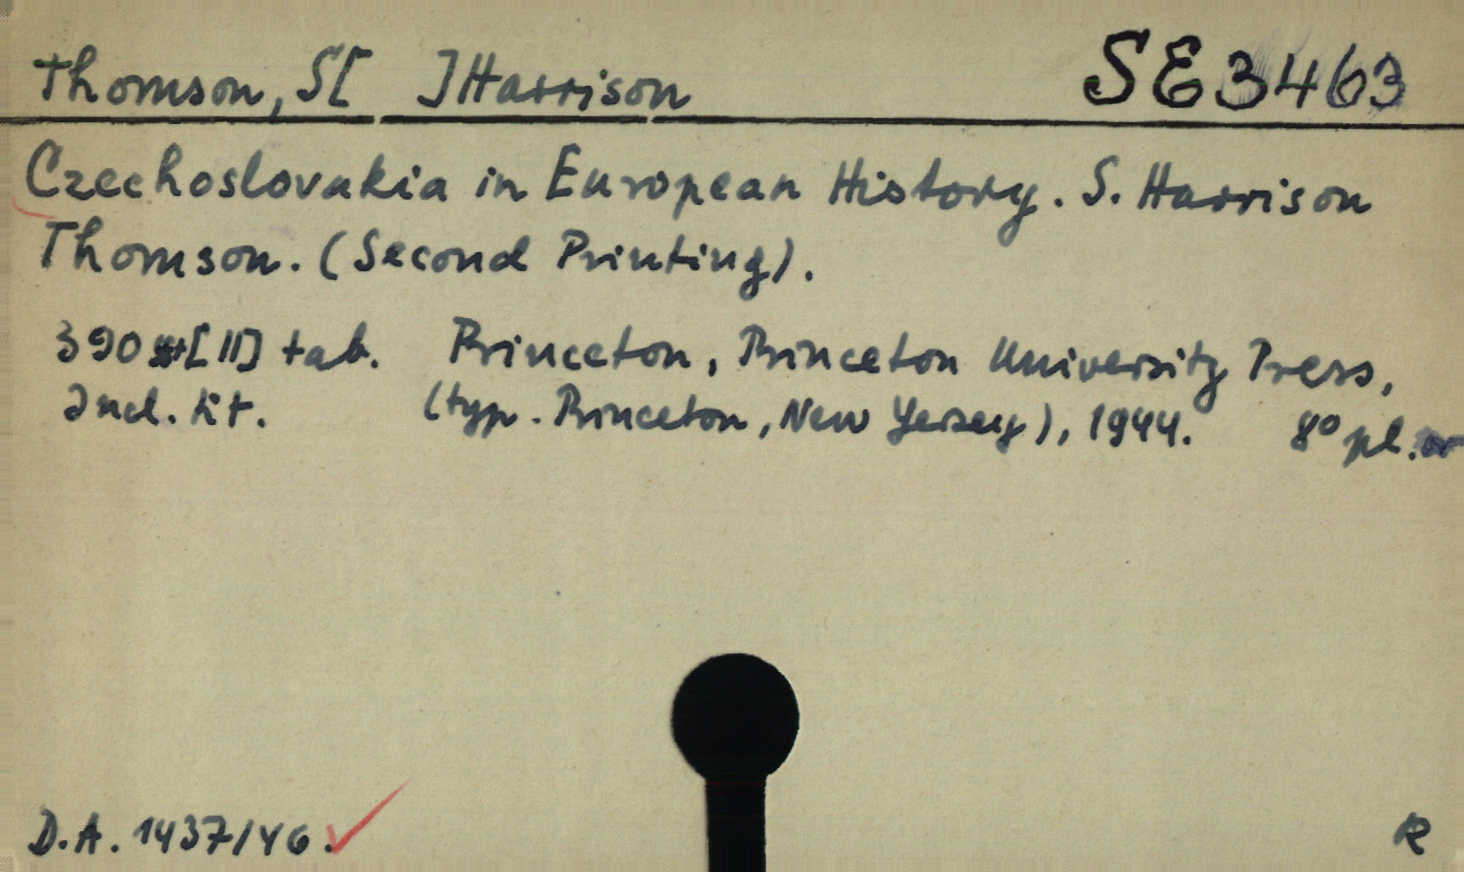 Thomson, S[ ]Harrison SE3463
Czechoslovakia in European History. S. Harrison
Thomson. (Second Printing).
390 [11] tab. Princeton, Princeton University Press,
Incl. tit. (typ. Princeton, New Yersey), 1944. 8° pl.
D.A. 1437/46. R